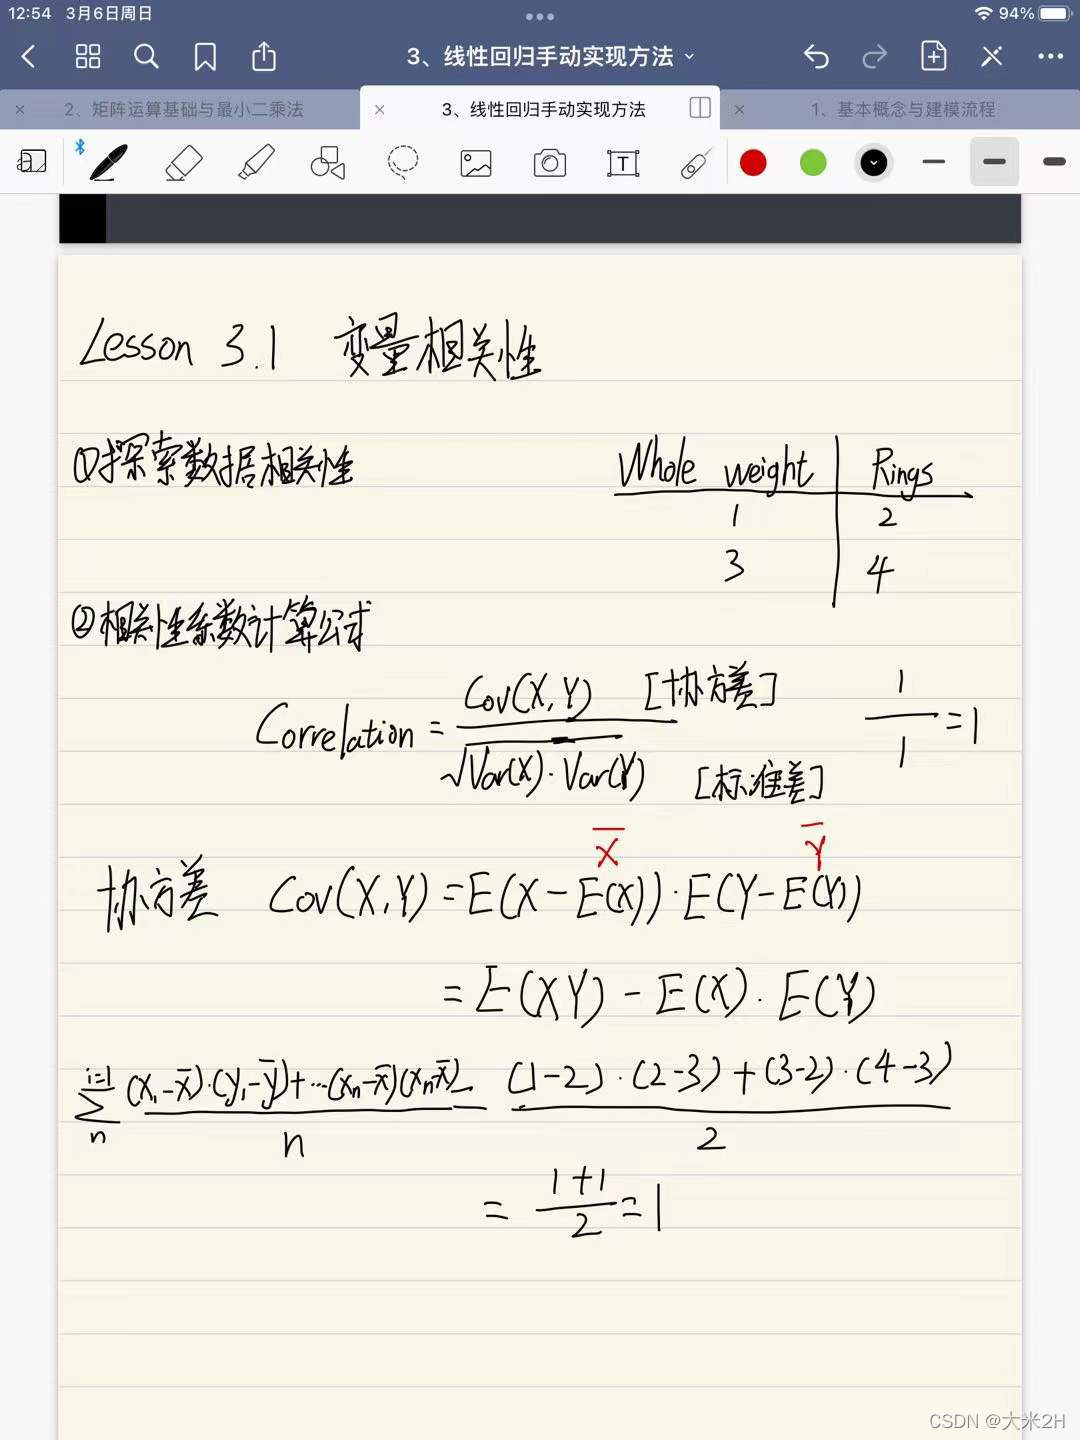 12:54 3月6日周日 94%
3、线性回归手动实现方法
2、矩阵运算基础与最小二乘法
3、线性回归手动实现方法
1、基本概念与建模流程
Lesson 3.1 变量相关性
①探索数据相关性
Whole weight Rings
1 2
3 4
②相关性系数计算公式
Correlation = Cov(X,Y) / √Var(X)·Var(Y) [协方差] [标准差] 1/1 = 1
X̄ Ȳ
协方差 Cov(X,Y) = E(X-E(X))·E(Y-E(Y))
= E(XY) - E(X)·E(Y)
i=1 ∑ n (x₁-x̄)·(y₁-ȳ)+…(xn-x̄)(xn x̄) / n = (1-2)·(2-3)+(3-2)·(4-3) / 2
= 1+1 / 2 = 1
CSDN @大米2H